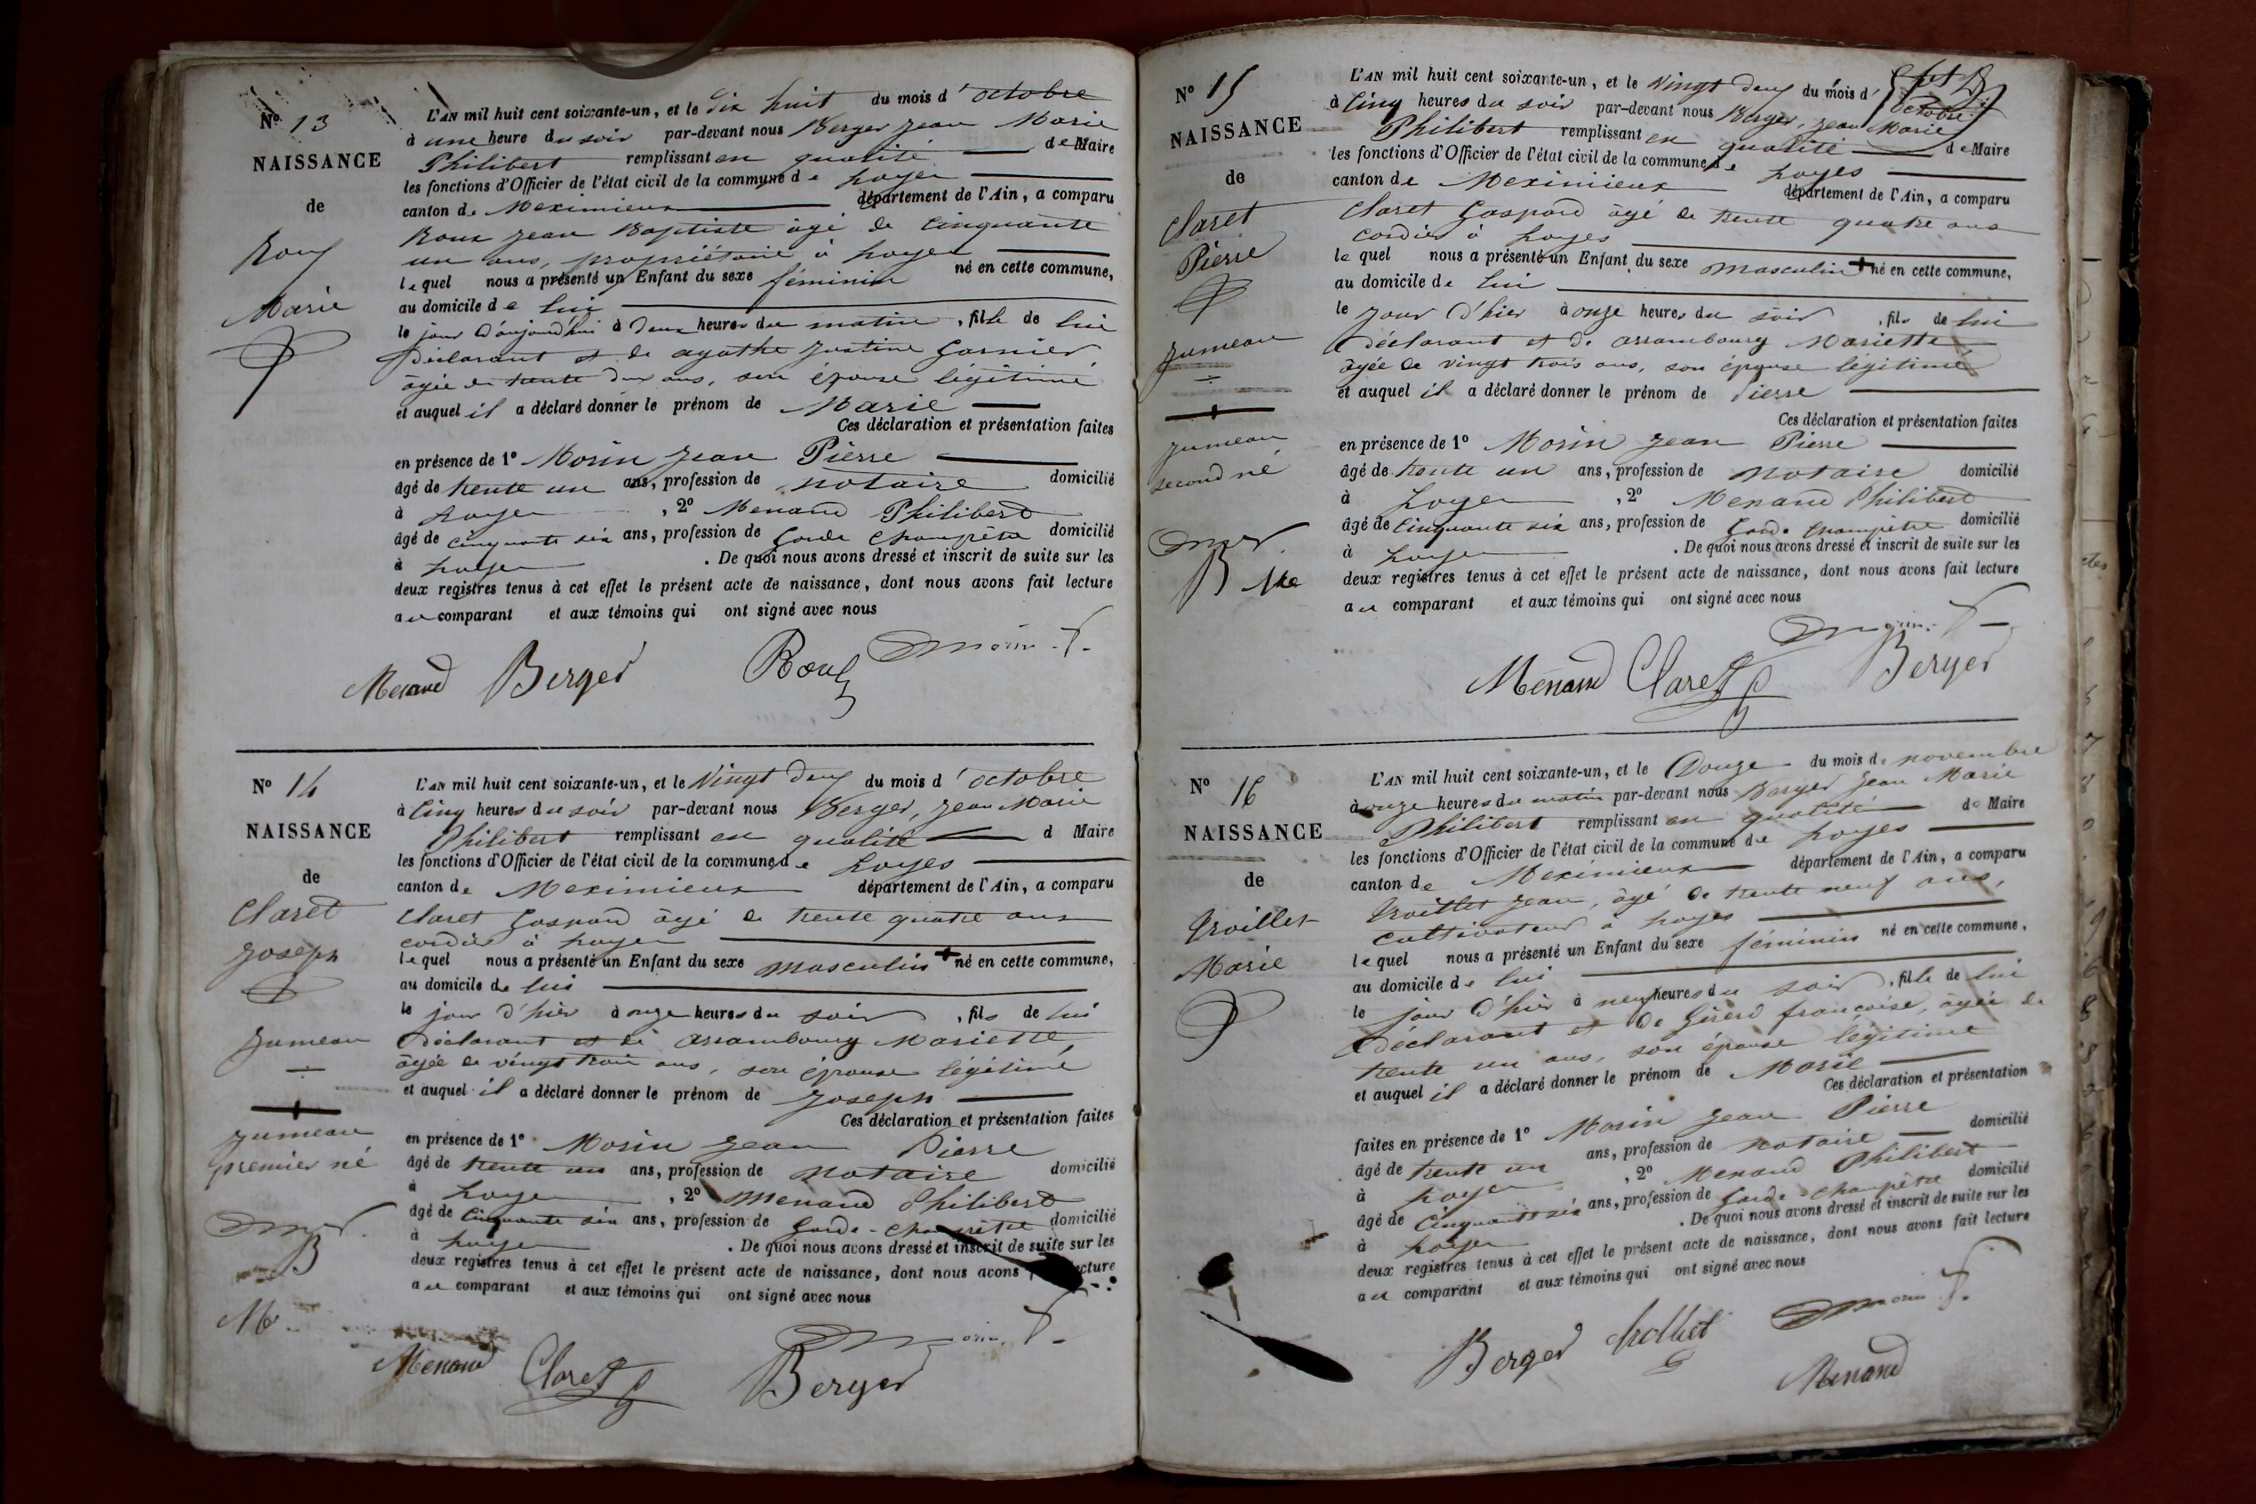 Nº 13
NAISSANCE
de
Roux
Marie
L'AN mil huit cent soixante-un, et le dix huit du mois d'octobre
à une heure du soir par-devant nous Berger Jean Marie
Philibert remplissant en qualité de Maire
les fonctions d'Officier de l'état civil de la commune de Loyes
canton de Meximieux département de l'Ain, a comparu
Roux Jean Baptiste âgé de cinquante
un ans, propriétaire à Loyes
lequel nous a présenté un Enfant du sexe féminin né en cette commune,
au domicile de lui
le jour d'aujourd'hui à deux heures du matin, fille de lui
déclarant et de agathe Justine Garnier
âgée de trente deux ans, son épouse légitime
et auquel il a déclaré donner le prénom de Marie
Ces déclaration et présentation faites
en présence de 1º Morin Jean Pierre
âgé de trente un ans, profession de notaire domicilié
à Loyes, 2º Menand Philibert
âgé de cinquante six ans, profession de Garde Champêtre domicilié
à Loyes. De quoi nous avons dressé et inscrit de suite sur les
deux registres tenus à cet effet le présent acte de naissance, dont nous avons fait lecture
au comparant et aux témoins qui ont signé avec nous
Morin
Menand Berger Roux
Nº 14
NAISSANCE
de
Claret
Joseph
Jumeau
Jumeau
premier né
B
M
L'AN mil huit cent soixante-un, et le Vingt deux du mois d'octobre
à Cinq heures du soir par-devant nous Berger, Jean Marie
Philibert remplissant en qualité d Maire
les fonctions d'Officier de l'état civil de la commune de Loyes
canton de Meximieux département de l'Ain, a comparu
Claret Gaspard âgé de trente quatre ans
cordier à Loyes
lequel nous a présenté un Enfant du sexe masculin + né en cette commune,
au domicile de lui
le jour d'hier à onze heures du soir, fils de lui
déclarant et de Arrambourg Mariette,
âgée de vingt trois ans, son épouse légitime
et auquel il a déclaré donner le prénom de Joseph
Ces déclaration et présentation faites
en présence de 1º Morin Jean Pierre
âgé de trente un ans, profession de notaire domicilié
à Loyes, 2º Menand Philibert
âgé de Cinquante six ans, profession de Garde-Champêtre domicilié
à Loyes. De quoi nous avons dressé et inscrit de suite sur les
deux registres tenus à cet effet le présent acte de naissance, dont nous avons lecture
au comparant et aux témoins qui ont signé avec nous
Morin
Menand Claret Berger
Nº 15
NAISSANCE
de
Claret
Pierre
Jumeau
Jumeau
second né
B
L'AN mil huit cent soixante-un, et le Vingt deux du mois d'octobre
à Cinq heures du soir par-devant nous Berger, Jean Marie
Philibert remplissant en qualité de Maire
les fonctions d'Officier de l'état civil de la commune de Loyes
canton de Meximieux département de l'Ain, a comparu
Claret Gaspard âgé de trente quatre ans
cordier à Loyes
lequel nous a présenté un Enfant du sexe masculin + né en cette commune,
au domicile de lui
le jour d'hier à onze heures du soir, fils de lui
déclarant et de Arrambourg Mariette,
âgée de vingt trois ans, son épouse légitime
et auquel il a déclaré donner le prénom de Pierre
Ces déclaration et présentation faites
en présence de 1º Morin Jean Pierre
âgé de trente un ans, profession de notaire domicilié
à Loyes, 2º Menand Philibert
âgé de Cinquante six ans, profession de Garde Champêtre domicilié
à Loyes. De quoi nous avons dressé et inscrit de suite sur les
deux registres tenus à cet effet le présent acte de naissance, dont nous avons fait lecture
au comparant et aux témoins qui ont signé avec nous
Morin
Menand Claret Berger
Nº 16
NAISSANCE
de
Trolliet
Marie
L'AN mil huit cent soixante-un, et le Douze du mois de novembre
à onze heures du matin par-devant nous Berger Jean Marie
Philibert remplissant en qualité de Maire
les fonctions d'Officier de l'état civil de la commune de Loyes
canton de Meximieux département de l'Ain, a comparu
Trolliet Jean, âgé de trente neuf ans,
cultivateur à Loyes
lequel nous a présenté un Enfant du sexe féminin né en cette commune,
au domicile de lui
le jour d'hier à neuf heures du soir, fille de lui
déclarant et de Girerd françoise, âgée de
trente un ans, son épouse légitime
et auquel il a déclaré donner le prénom de Marie
Ces déclaration et présentation
faites en présence de 1º Morin Jean Pierre
âgé de trente un ans, profession de notaire domicilié
à Loyes, 2º Menand Philibert
âgé de Cinquante six ans, profession de Garde-Champêtre domicilié
à Loyes. De quoi nous avons dressé et inscrit de suite sur les
deux registres tenus à cet effet le présent acte de naissance, dont nous avons fait lecture
au comparant et aux témoins qui ont signé avec nous
Morin
Berger Trolliet
Menand